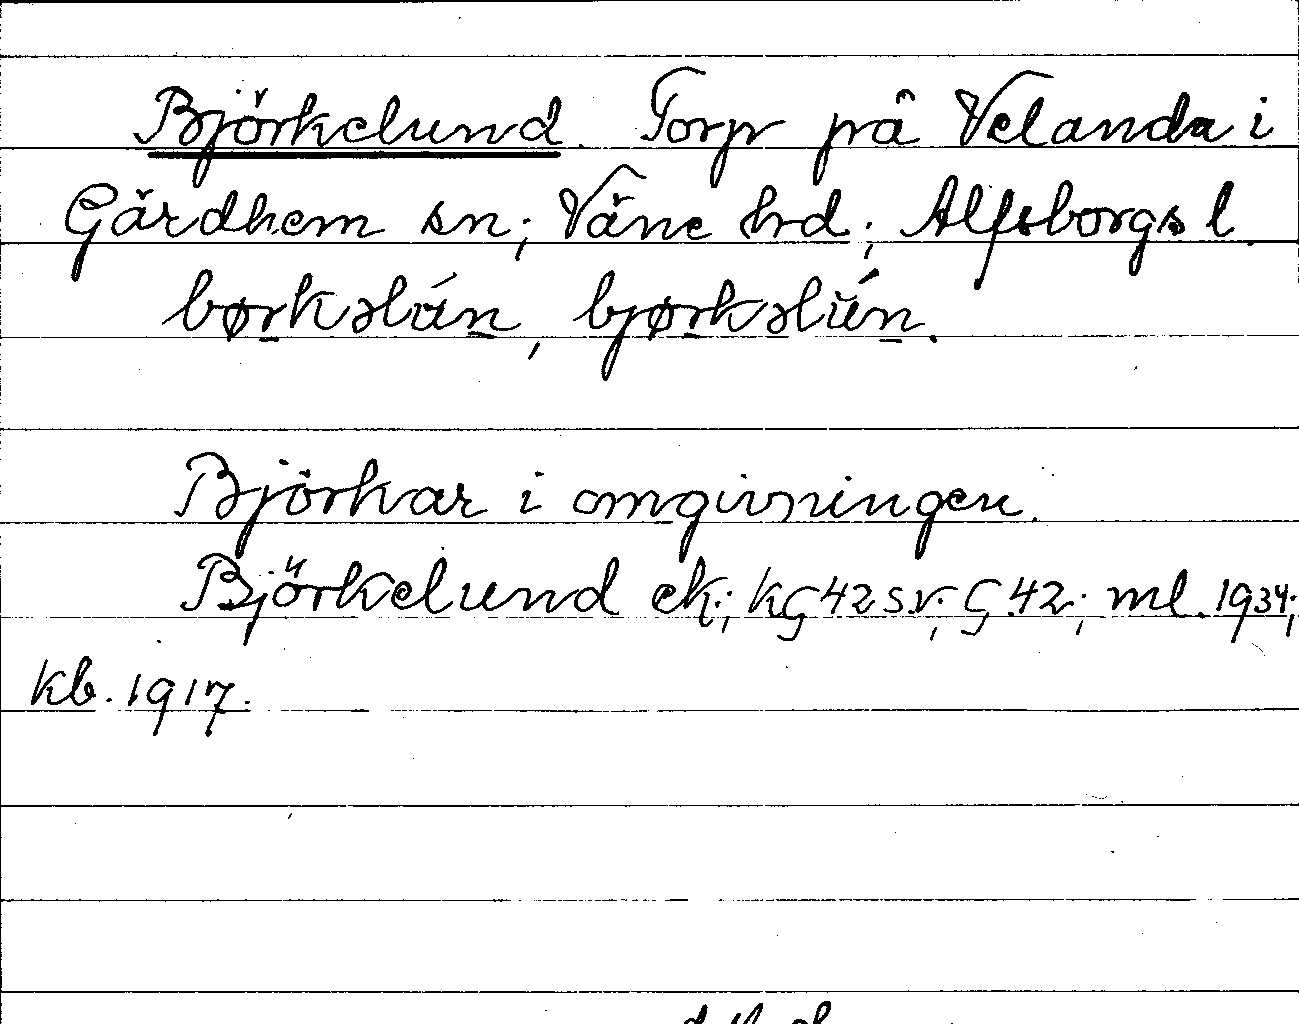 Björkelund. Torp på Velanda i
Gärdhem sn; Väne hd; Älfsborgs l.
børkəlún, bjørkəlún.
Björkar i omgivningen.
Björkelund ek; KG42sv; G42; ml. 1934;
kb. 1917.